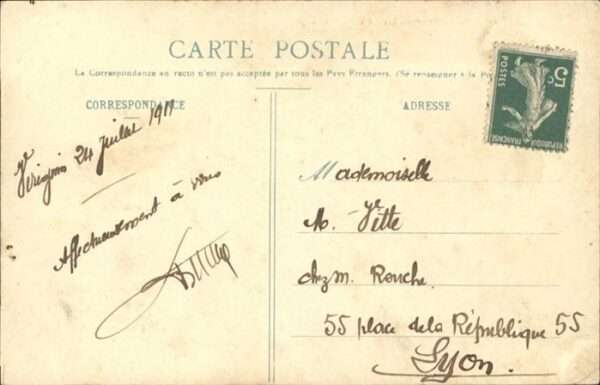 CARTE POSTALE
La Correspondance au recto n'est pas acceptée par tous les Pays Etrangers. (Se renseigner à la
CORRESPONDANCE
ADRESSE
5c
POSTES
REPUBLIQUE FRANÇAISE
24 Juillet 1911
Affectueusement à vous
Mademoiselle
A. Vette
chez m. Rouche
55 place de la République 55
Lyon.